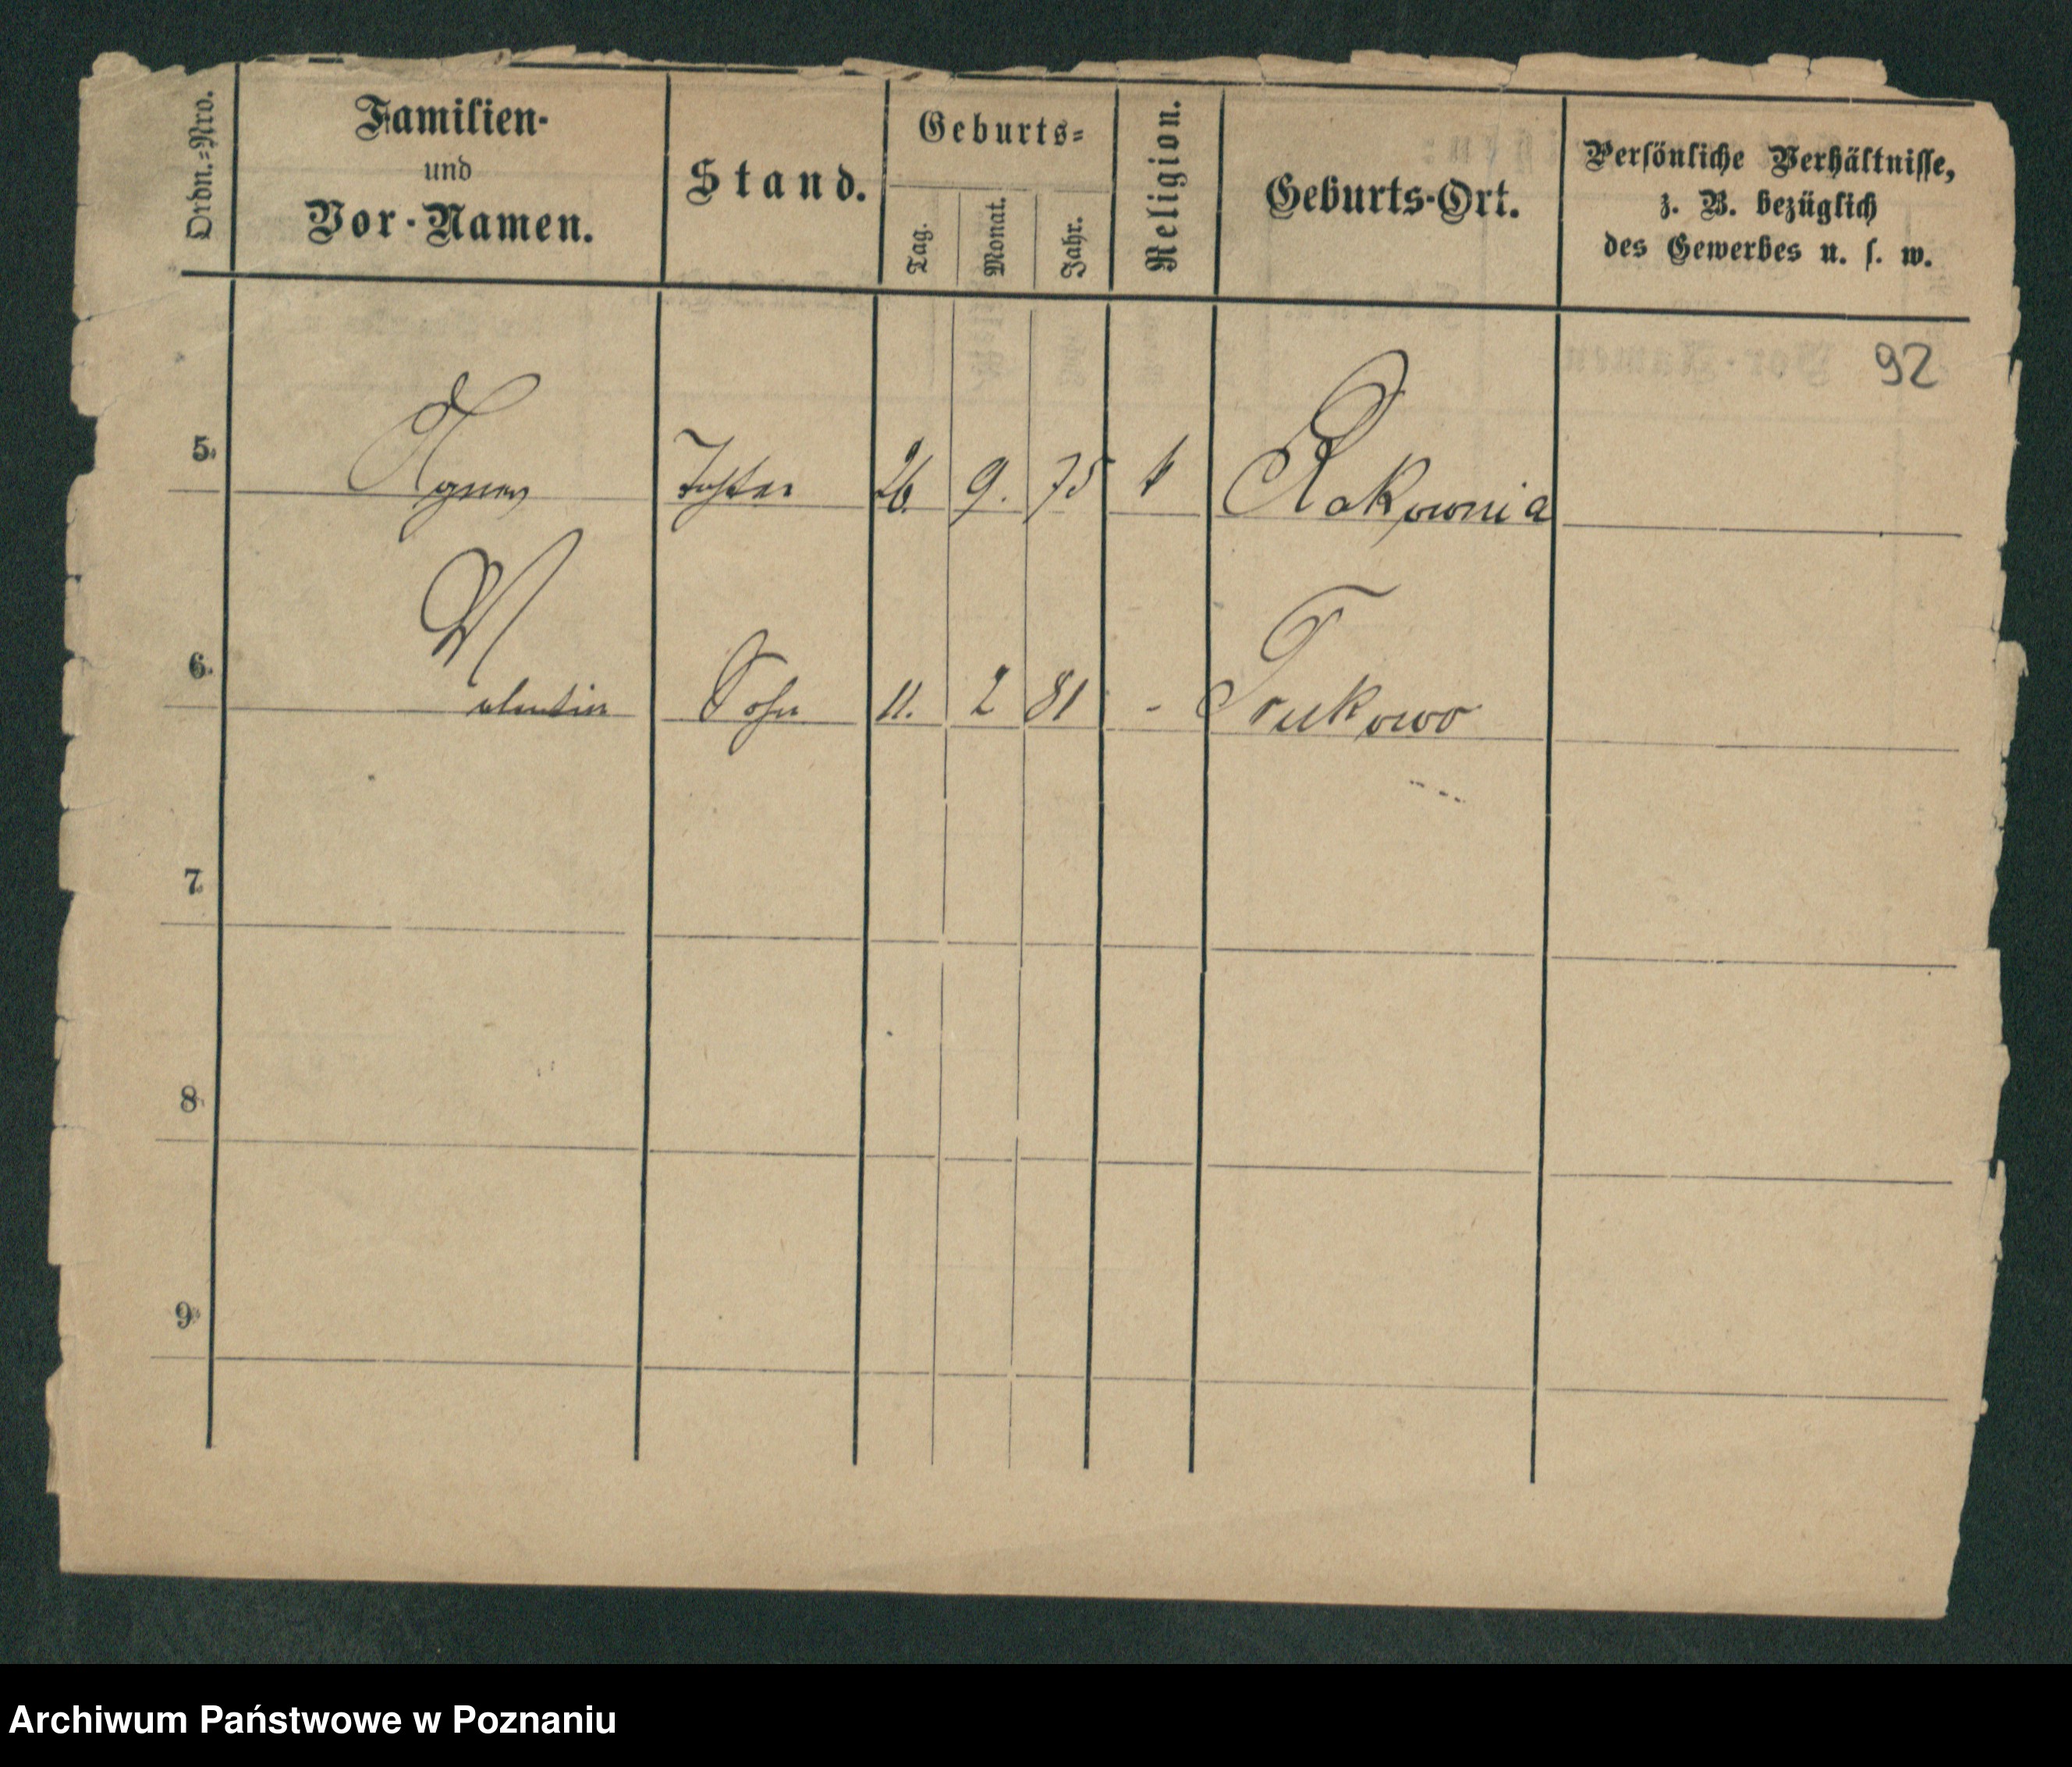 Ordn.=Nro.
Familien-
und
Vor-Namen.
Stand.
Geburts=
Tag.
Monat.
Jahr.
Religion.
Geburts-Ort.
Persönliche Verhältnisse,
z. B. bezüglich
des Gewerbes u. s. w.
92
5. Agnes Tochter 26. 9. 75 k Rakownia
6. Valentin Sohn 11. 2 81 -
7.
8.
9.
Archiwum Państwowe w Poznaniu